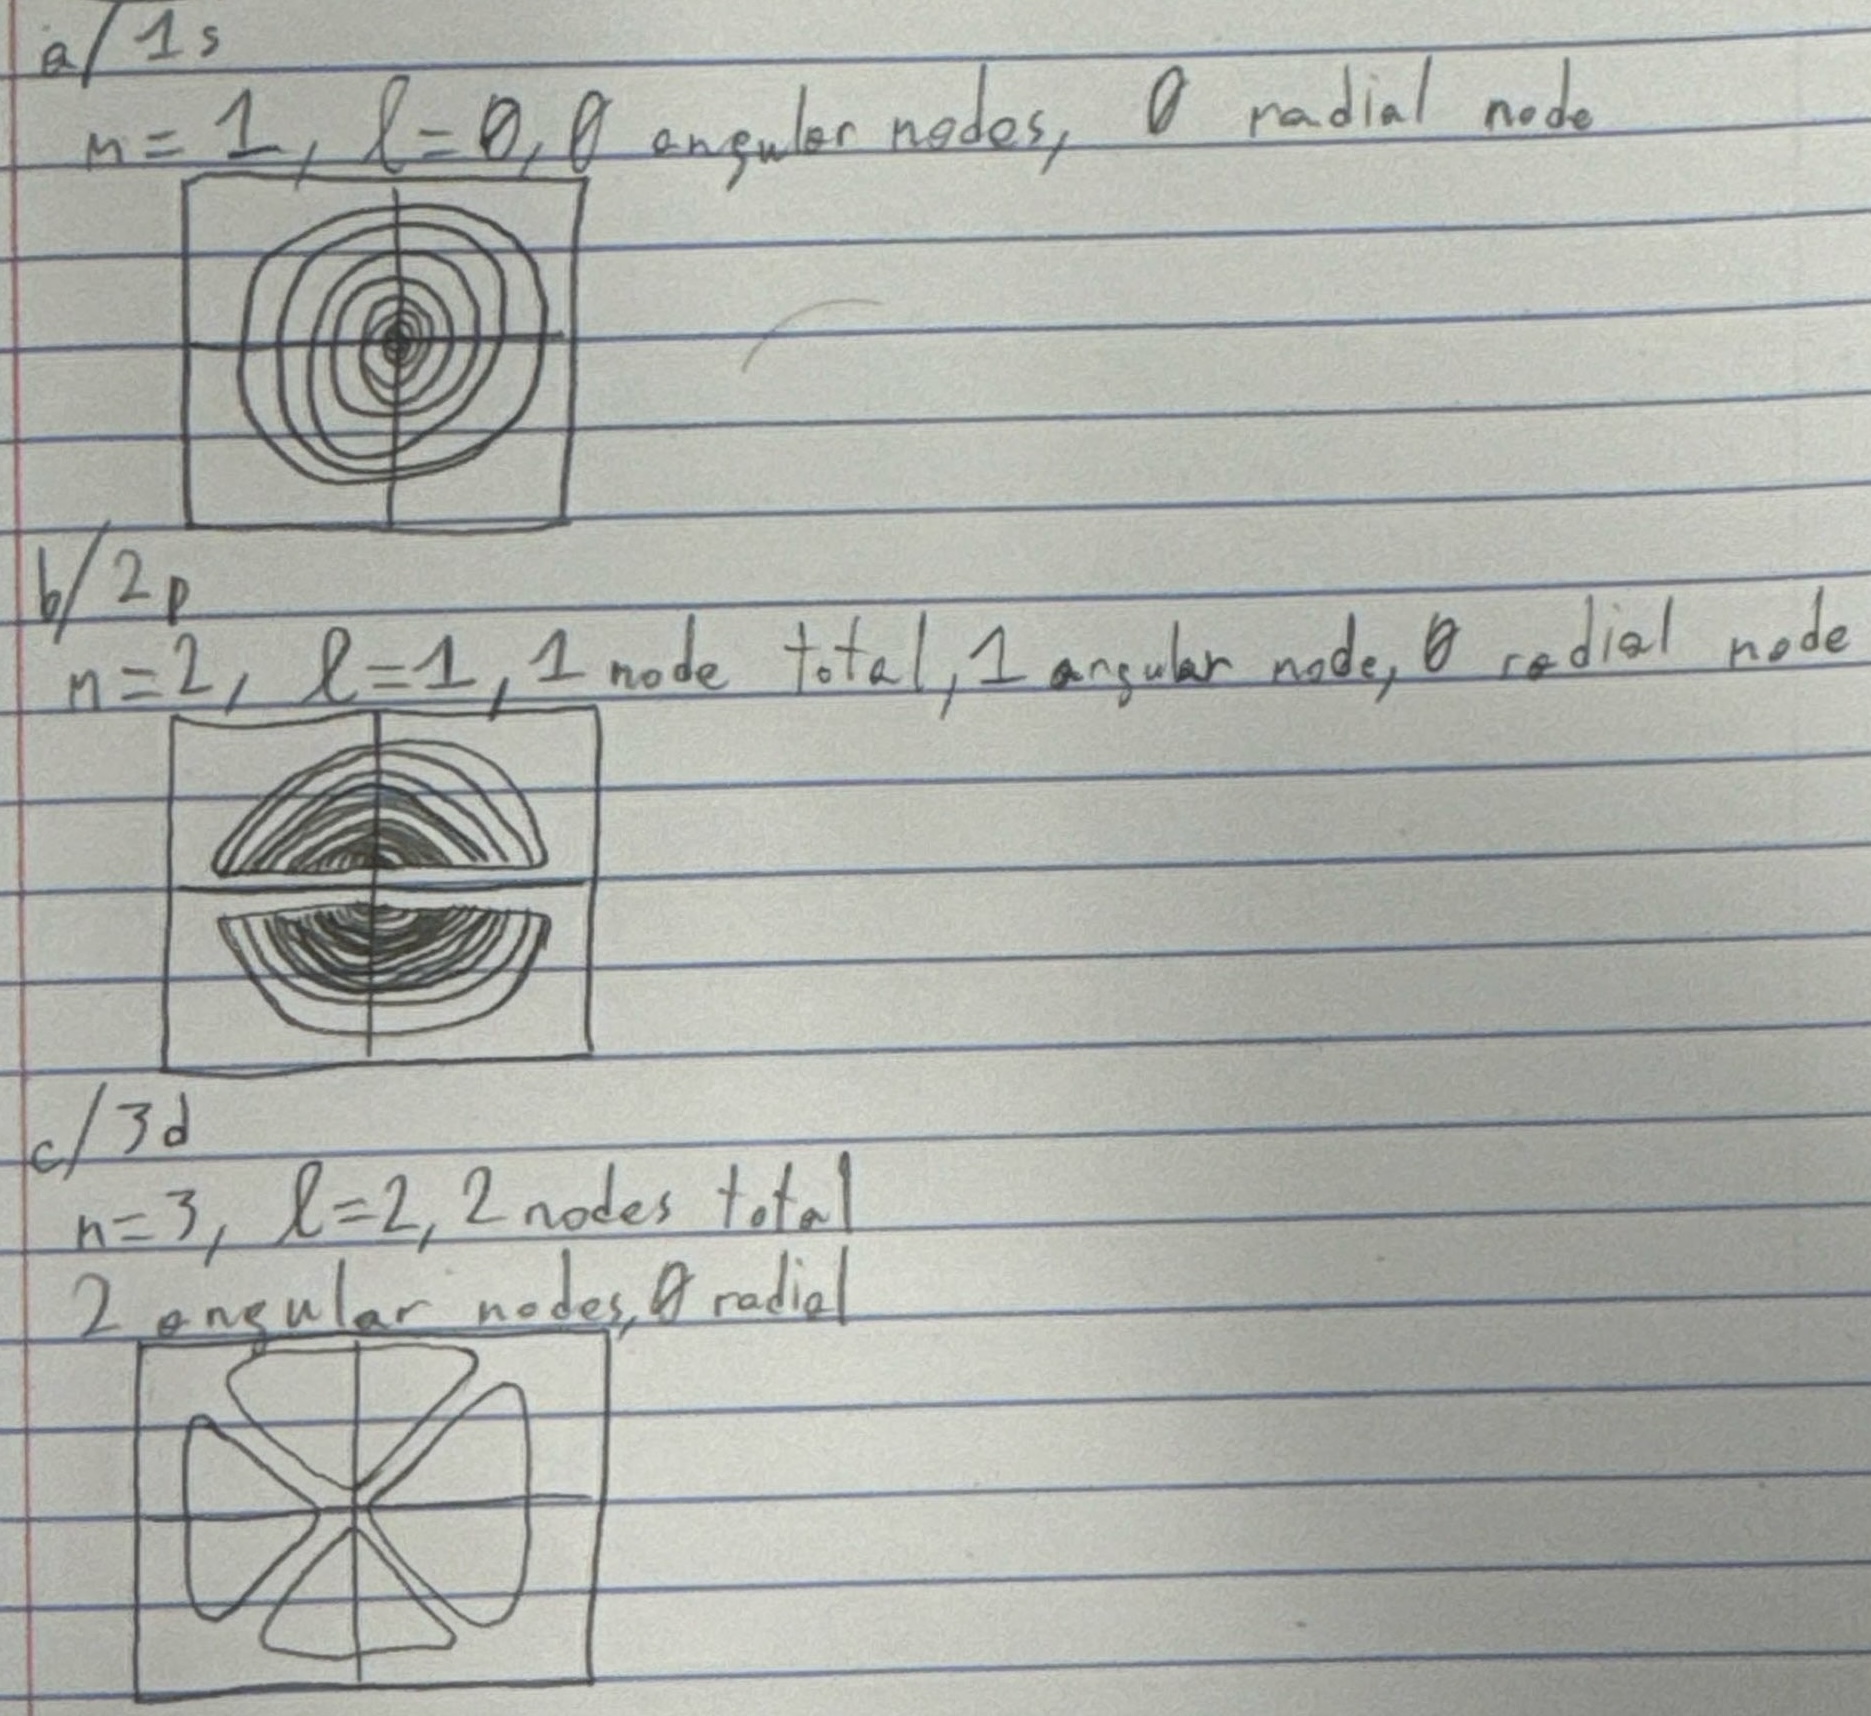 a/ 1s
n = 1, l = 0, 0 angular nodes, 0 radial node
b/ 2p
n = 2, l = 1, 1 node total, 1 angular node, 0 radial node
c/ 3d
n = 3, l = 2, 2 nodes total
2 angular nodes, 0 radial